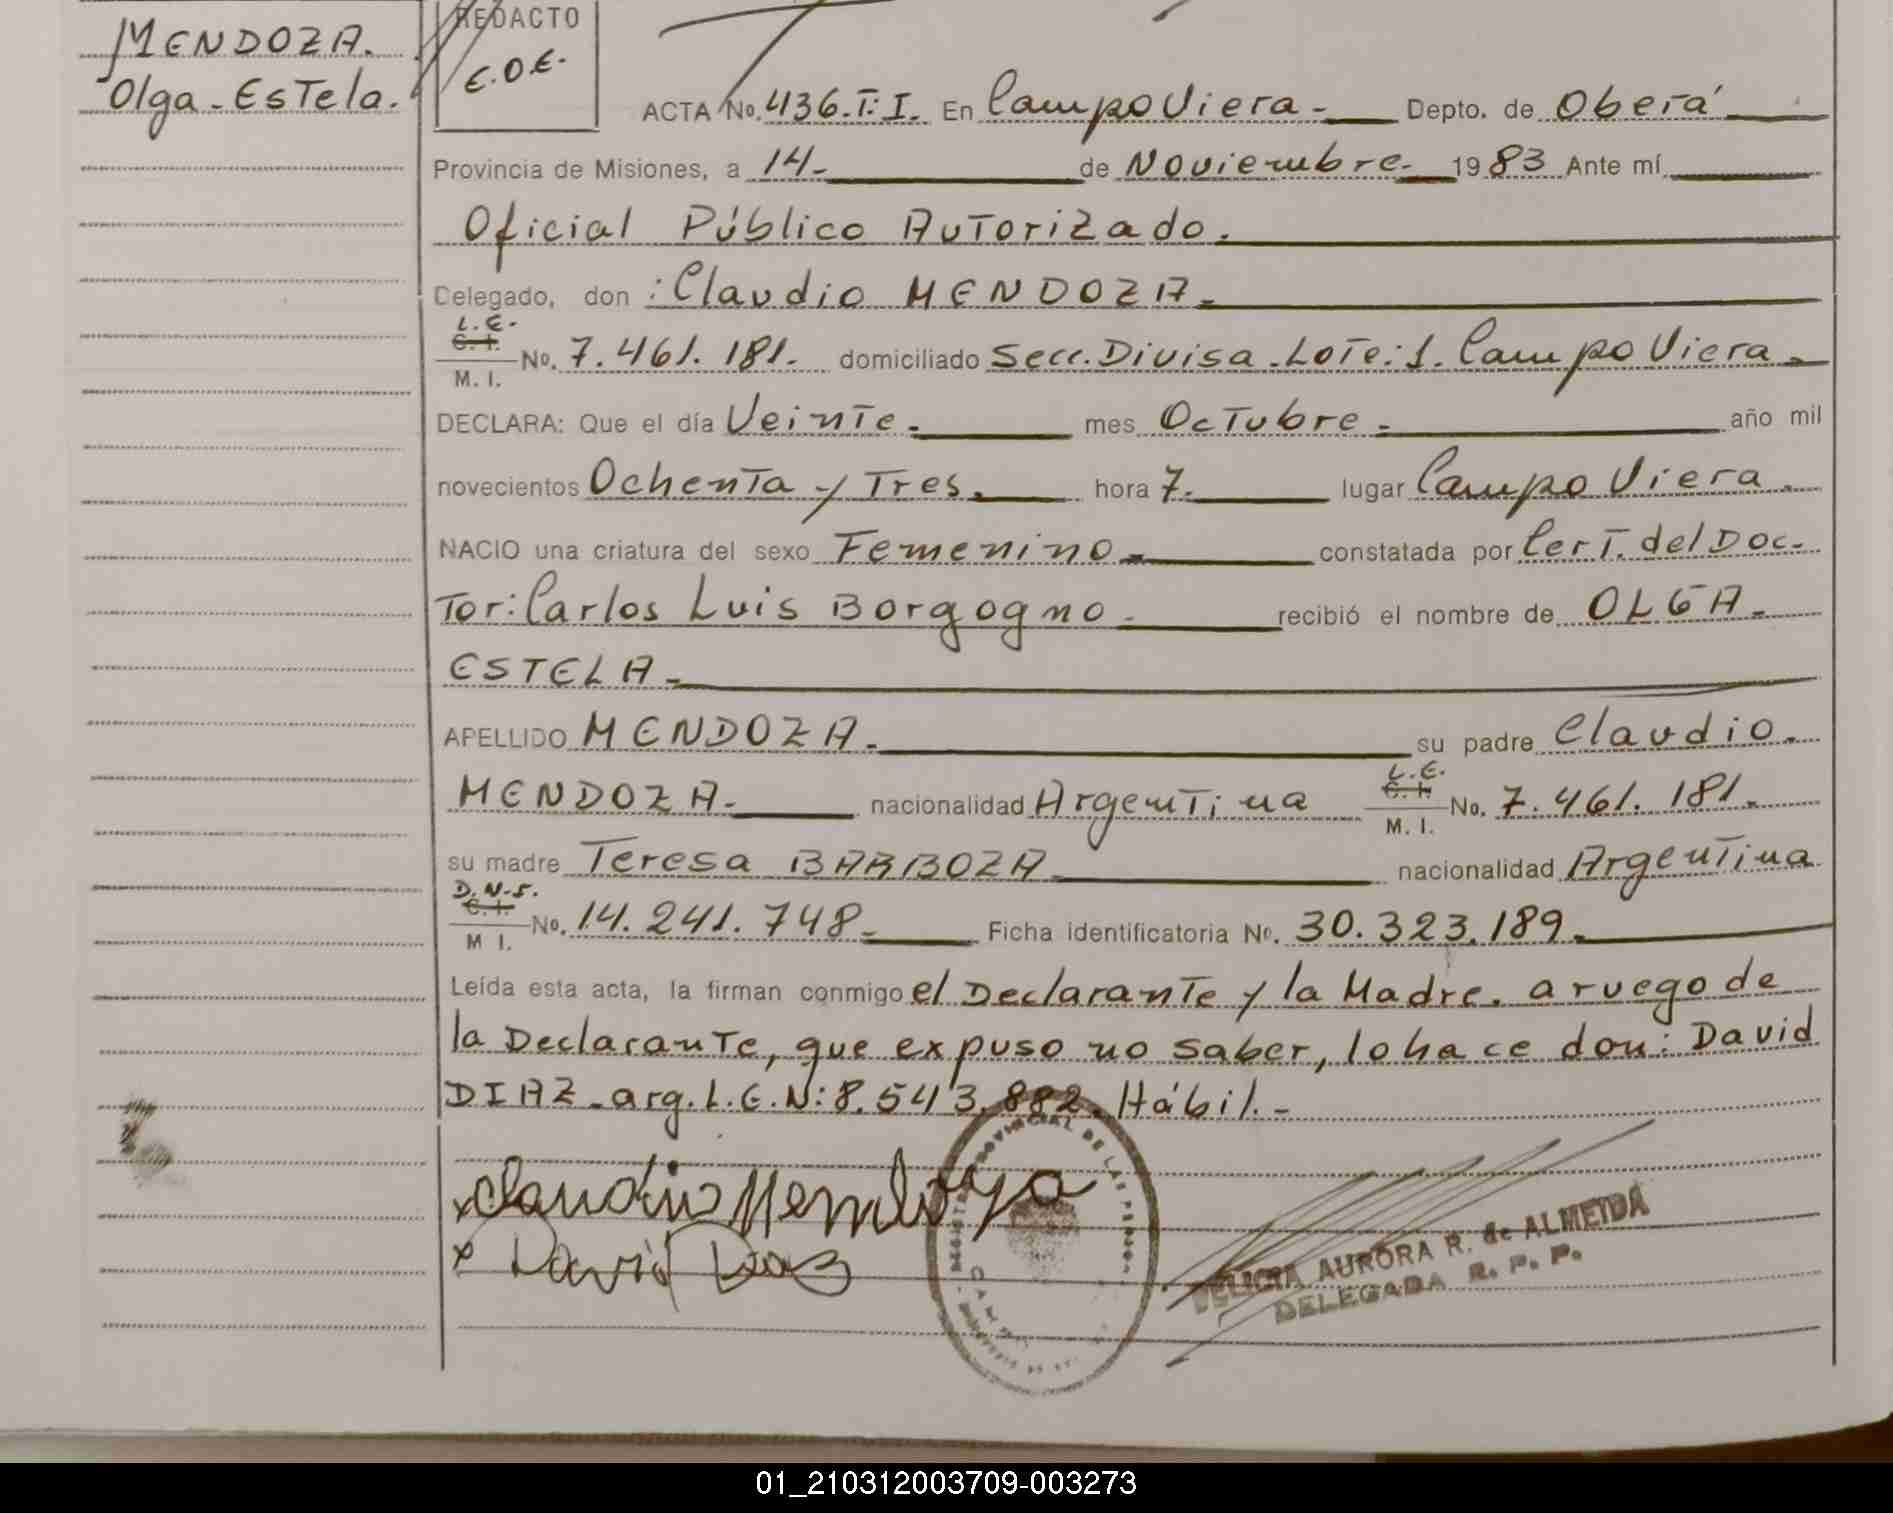 MENDOZA.
Olga-Estela.
REDACTO
E.O.E.
ACTA No. 436.T:I. En Campo Viera- Depto. de Oberá
Provincia de Misiones, a 14- de Noviembre- 1983 Ante mí
Oficial Público Autorizado.
Delegado, don: Claudio MENDOZA-
L.E.
C.I.
M.I. No. 7.461.181. domiciliado Secc. Divisa-Lote:1. Campo Viera-
DECLARA: Que el día Veinte- mes Octubre- año mil
novecientos Ochenta y Tres. hora 7. lugar Campo Viera.
NACIO una criatura del sexo Femenino- constatada por Cert. del Doc-
tor: Carlos Luis Borgogno- recibió el nombre de OLGA-
ESTELA-
APELLIDO MENDOZA- su padre Claudio-
L.E.
C.I.
MENDOZA- nacionalidad Argentina M.I. No. 7.461.181.
su madre Teresa BARBOZA- nacionalidad Argentina
D.N.I.
C.I.
M I. No. 14.241.748- Ficha identificatoria No. 30.323.189-
Leída esta acta, la firman conmigo el Declarante y la Madre. a ruego de
la Declarante, que expuso no saber, lo hace don: David
DIAZ-arg. L.E.N: 8.543.882. Hábil.-
x Claudio Mendoza
x David Diaz
REGISTRO PROVINCIAL DE LAS PERSON
FELICIA AURORA R. de ALMEIDA
DELEGADA R. P. P.
01_210312003709-003273